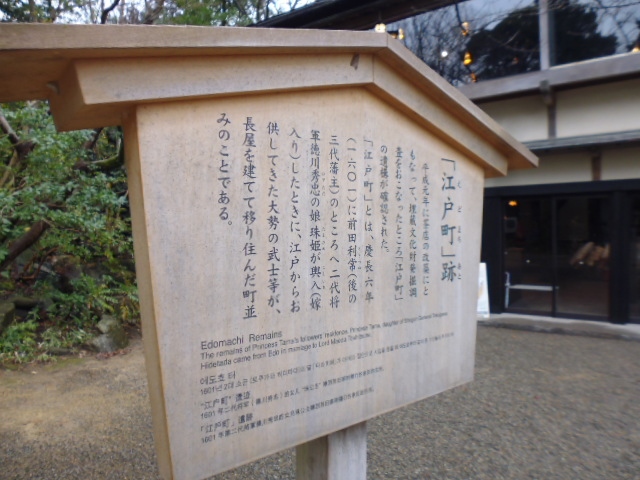 「江戸町」跡
平成元年に茶店の改築にと
もなって、埋蔵文化財発掘調
査をおこなったところ「江戸町」
の遺構が確認された。
「江戸町」とは、慶長六年
(一六〇一)に前田利常(後の
三代藩主)のところへ二代将
軍徳川秀忠の娘珠姫が輿入(嫁
入り)したときに、江戸からお
供してきた大勢の武士等が、
長屋を建てて移り住んだ町並
みのことである。
Edomachi Remains
The remains of Princess Tama's followers' residence. Princess Tama, daughter of Shogun General Tokugawa
Hidetada came from Edo in marriage to Lord Maeda Toshitsune.
에도초 터
"江戸町"遗迹
「江戸町」遺跡